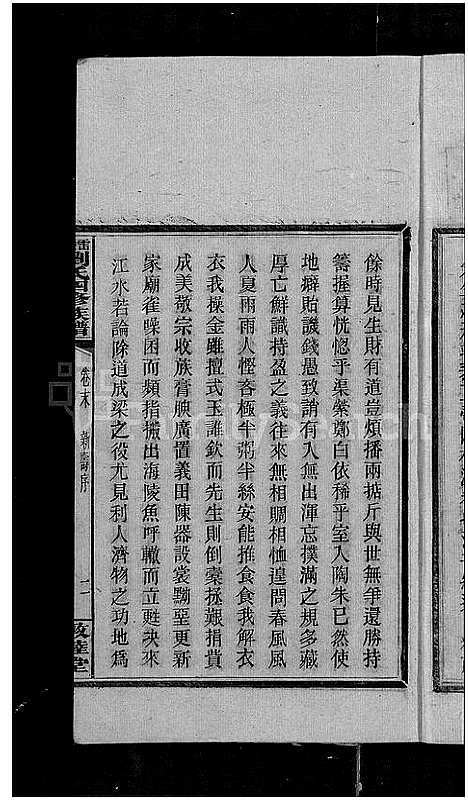 餘時見生財有道豈煩播兩掂斤與世無爭還勝持
籌握算恍惚乎渠紫鄭白依稀乎室入陶朱已然使
地癖貽譏錢愚致誚有入無出渾忘撲滿之規多藏
厚亡鮮識持盈之義往來無相賙相恤遑問春風風
人夏雨雨人慳吝極半粥半絲安能推食食我解衣
衣我操金雖擅式玉誰欽而先生則倒橐拯艱捐貲
成美敬宗收族膏腴廣置義田陳器設裳黝堊更新
家廟雀噪困而頻指搬出海陵魚呼轍而立甦決來
江水若論除道成梁之役尤見利人濟物之功地爲
劉氏四修族譜
卷末 壽序
二
敦睦堂